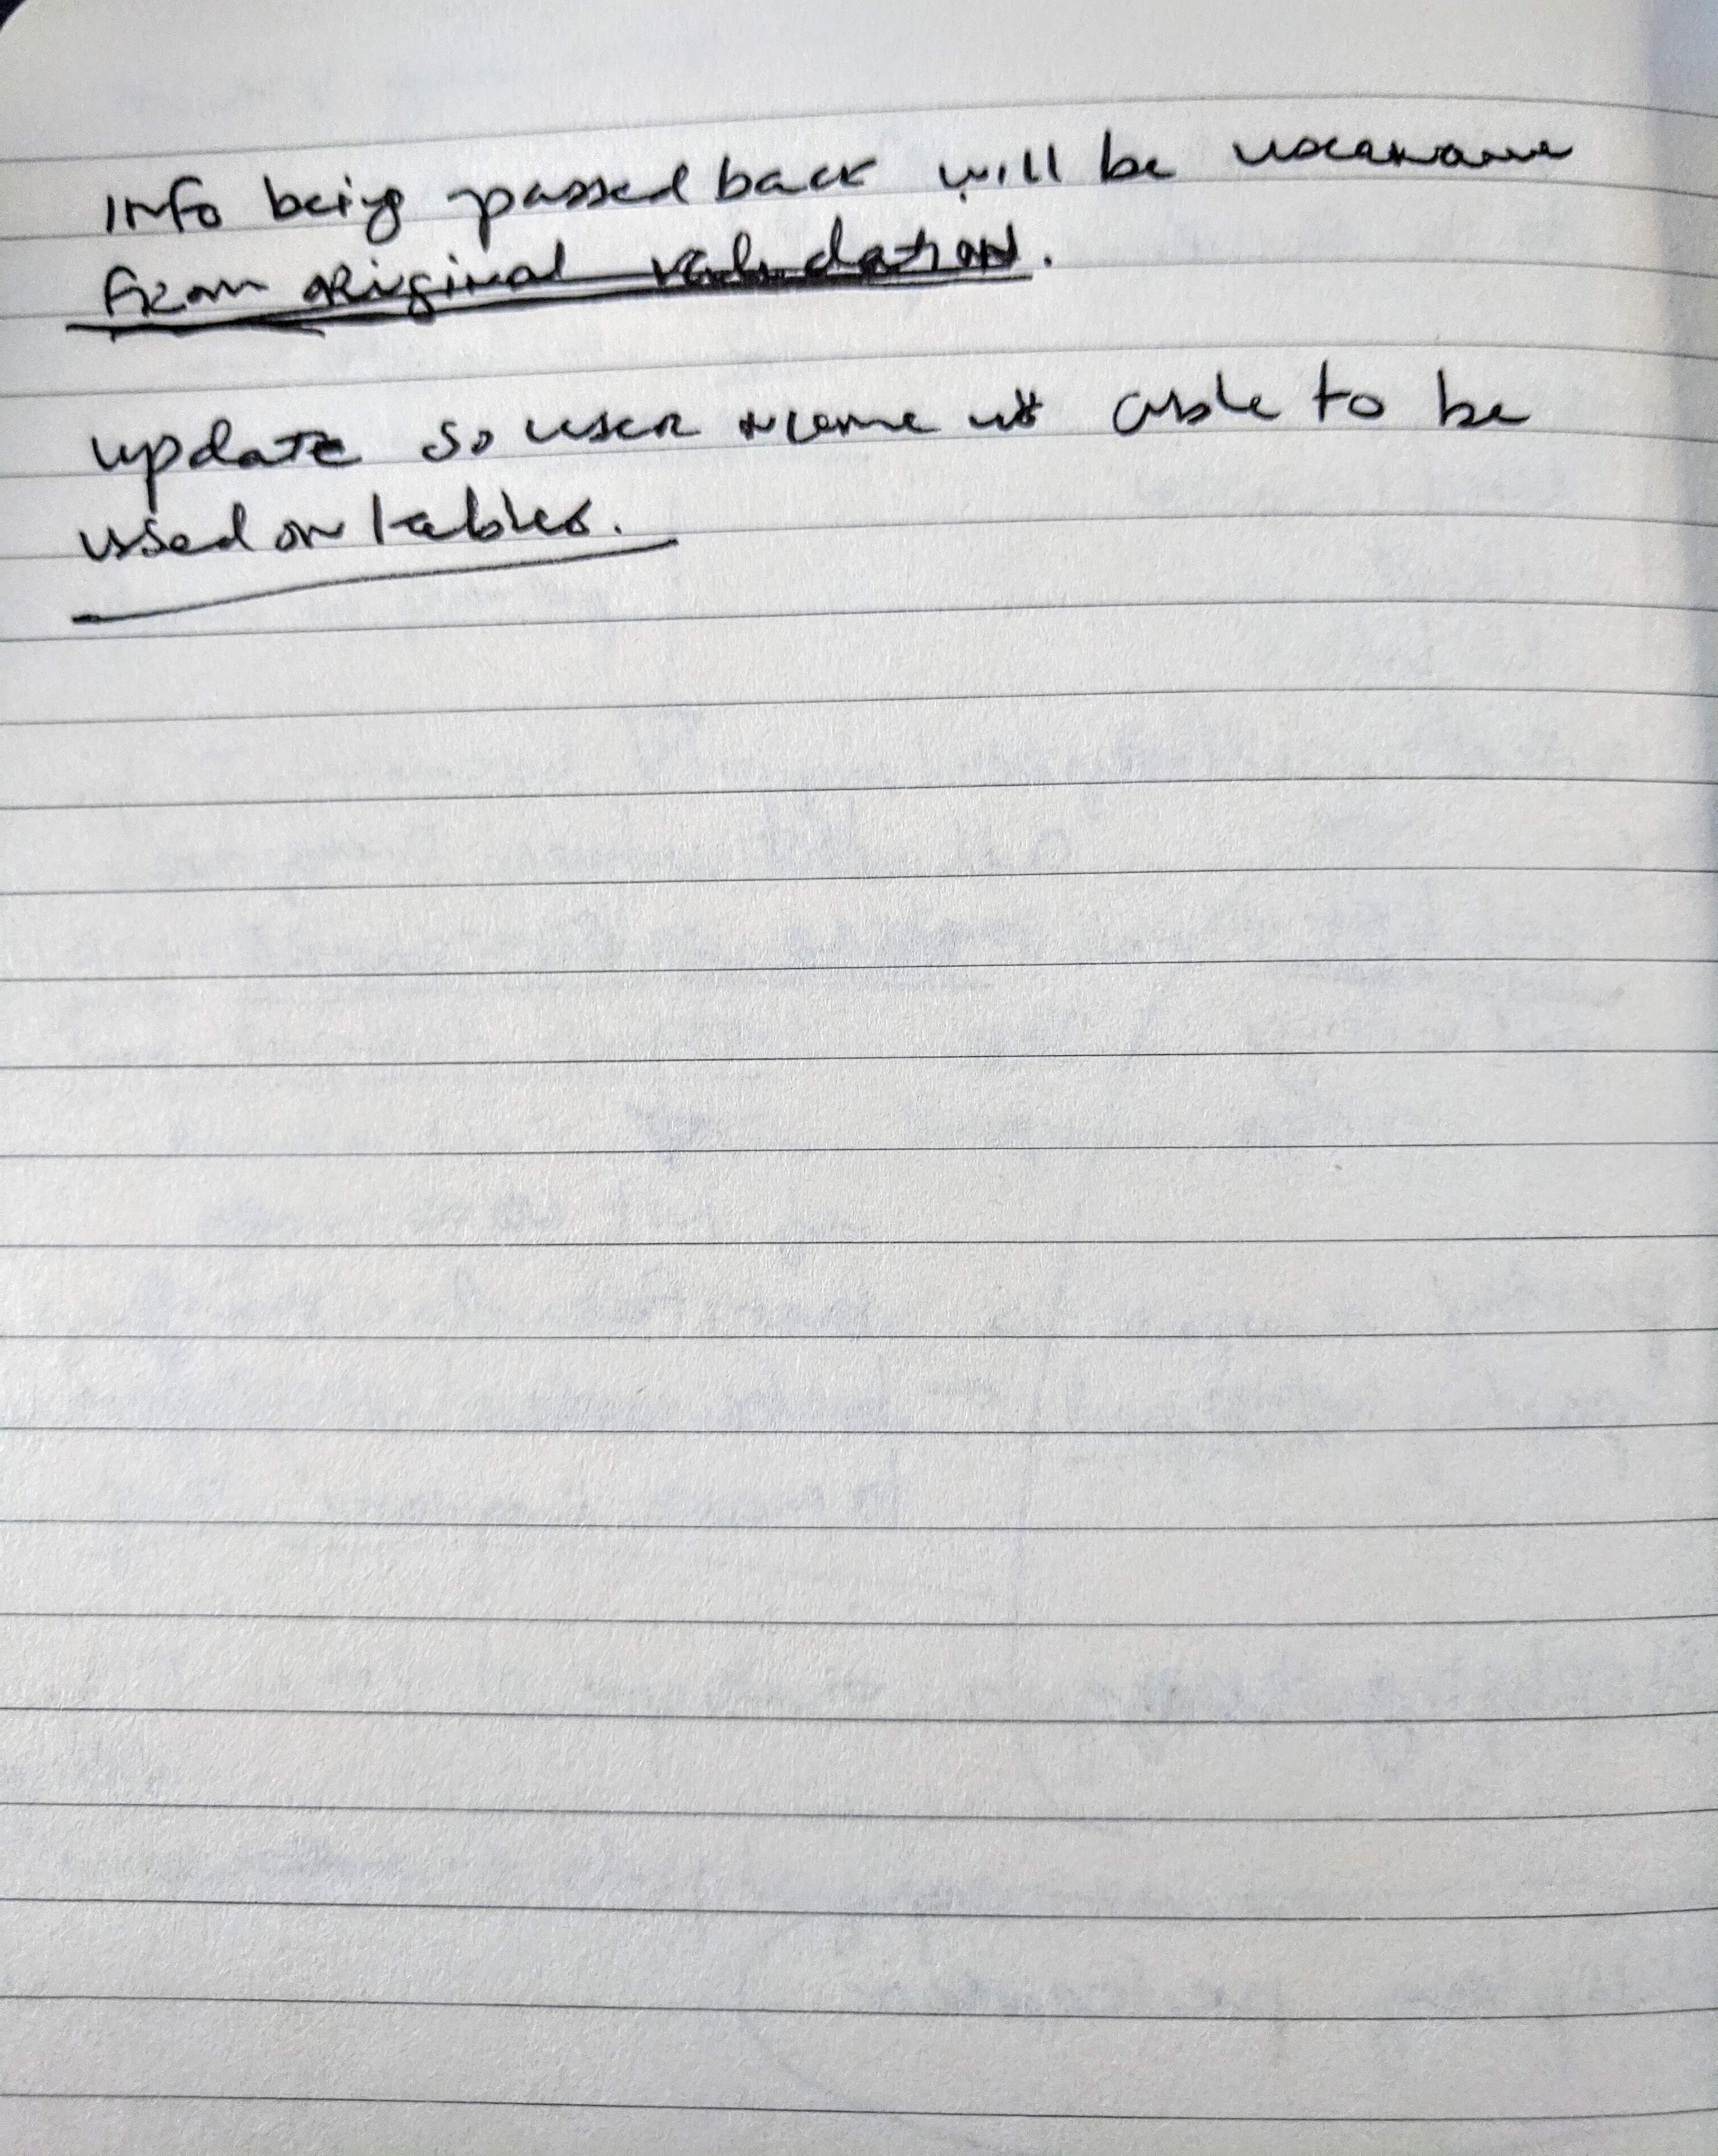 Info being passed back will be username
from original validation.
update so user name is able to be
used on tables.